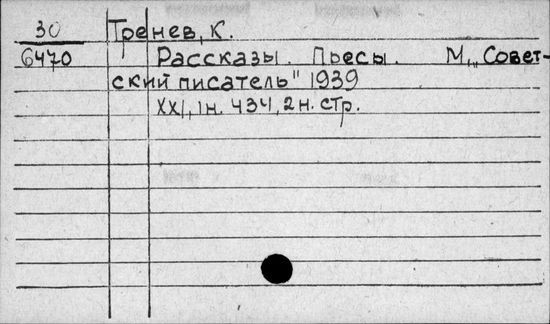 30 Тренев, К.
6470 Рассказы. Пьесы. М., „Совет-
ский писатель" 1939
XXI, 1н. 434, 2н. стр.